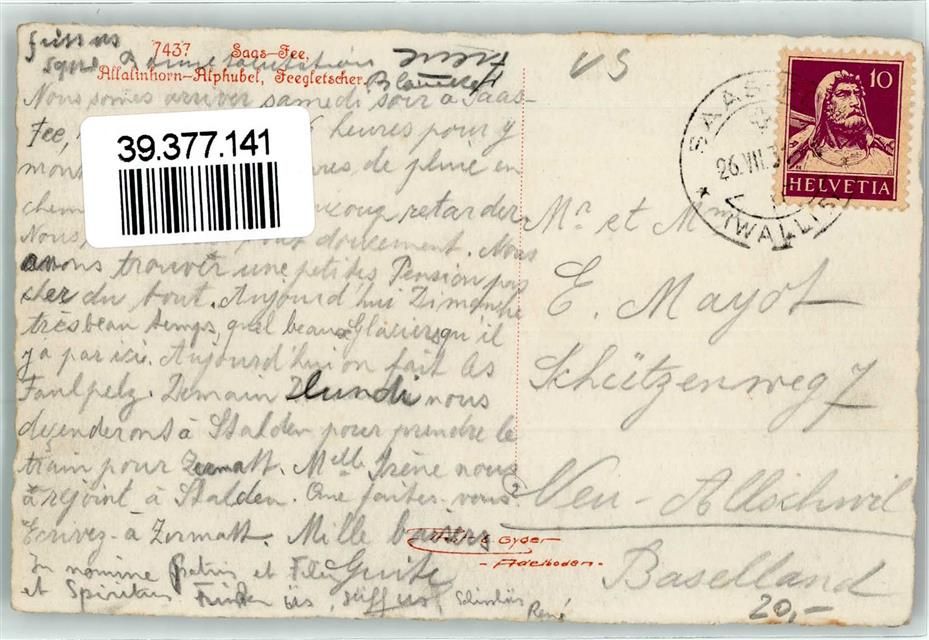 7437 Saas-Fee,
Allalinhorn-Alphubel, Feegletscher
Nous somes arriver samedi soir à Saas-
Fee, heures pour y
mon res de pluie en
chem aucoup retarder
Nous doucement. Nous
avons trouver une petites Pension pas
cher du tout. Aujourd'hui Dimanche
très beau temps, quel beaux Glaciers qu'il
y a par ici. Aujourd'hui on fait les
Faulpelz. Demain Lundi nous
decenderons à Stalden pour prendre le
train pour Zermatt. Mlle Irène nous
a rejoint à Stalden. Que faites-vous?
Ecrivez à Zermatt. Mille baisers
Guite
In nomine Patris et Filii
et Spiritus
René
39.377.141
VS
SAAS
26.VII.3
(WALLIS)
10
HELVETIA
Mr et Mm
E. Mayot
Schützenweg 7
Neu-Allschwil
Baselland
Gyger
-Adelboden-
20,-